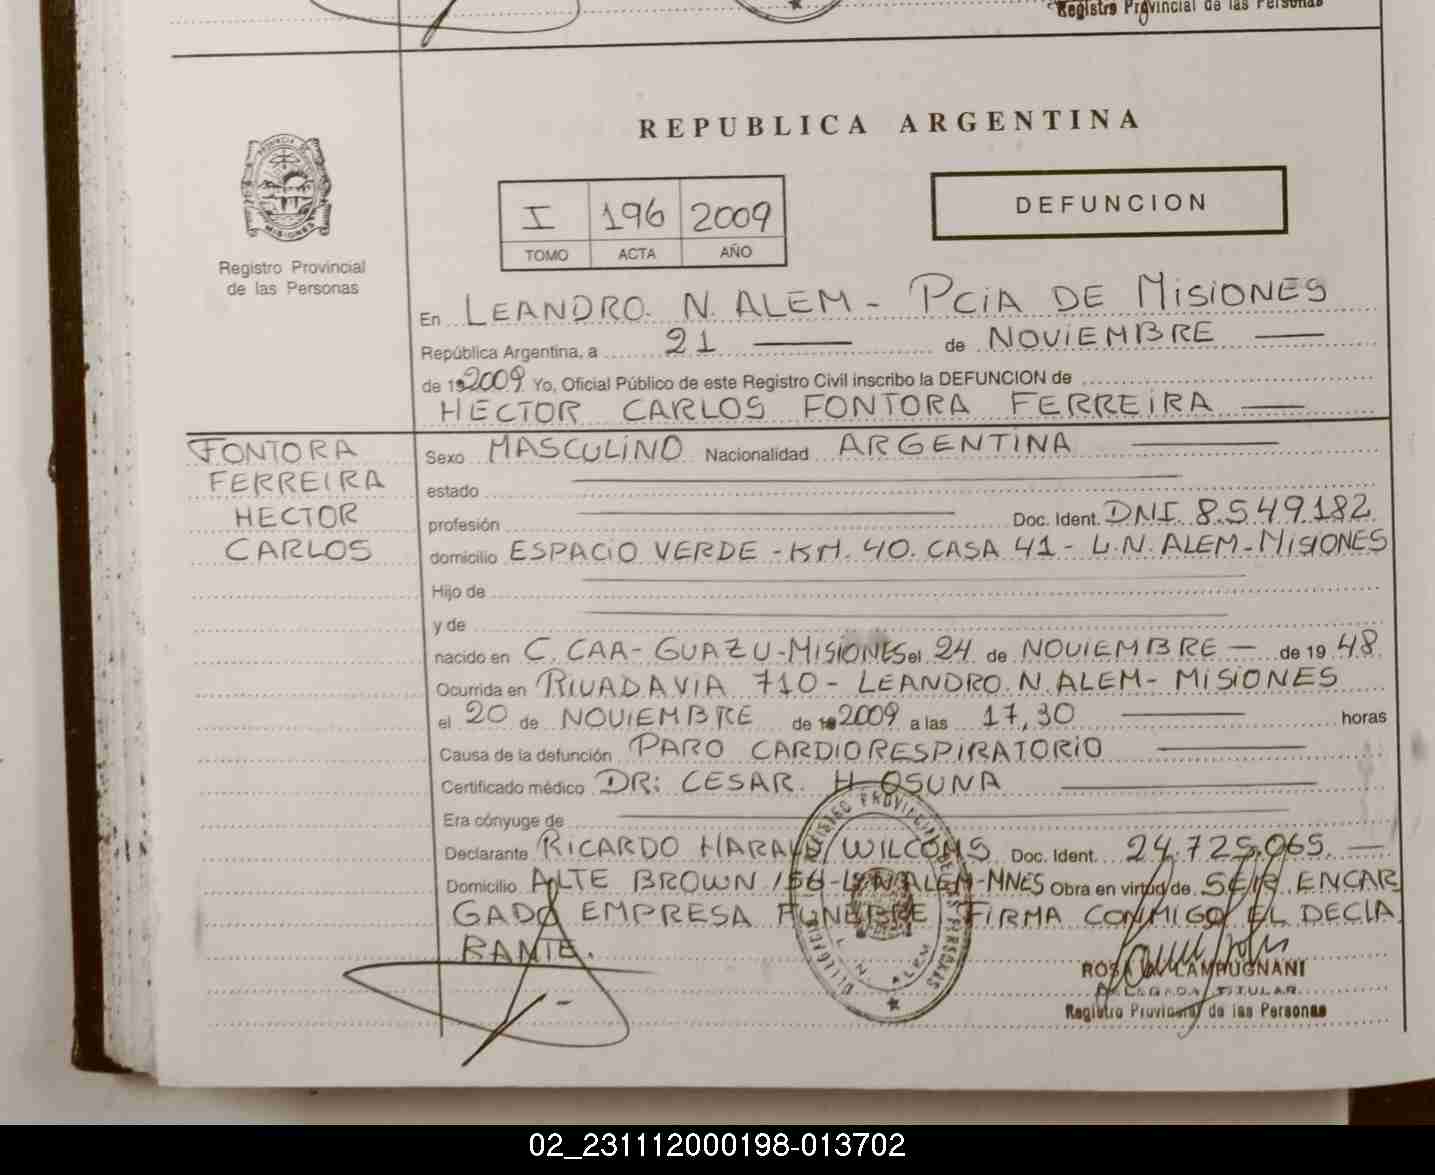 Registro Provincial de las Personas
REPUBLICA ARGENTINA
I 196 2009
TOMO ACTA AÑO
DEFUNCION
PROVINCIA DE
MISIONES
Registro Provincial
de las Personas
En LEANDRO. N. ALEM - PCIA DE MISIONES
República Argentina, a 21 de NOVIEMBRE
de 19 2009 Yo, Oficial Público de este Registro Civil inscribo la DEFUNCION de
HECTOR CARLOS FONTORA FERREIRA
FONTORA
FERREIRA
HECTOR
CARLOS
Sexo MASCULINO Nacionalidad ARGENTINA
estado
profesión Doc. Ident. DNI 8.549.182
domicilio ESPACIO VERDE - KM. 40. CASA 41 - L.N. ALEM - MISIONES
Hijo de
y de
nacido en C. CAA-GUAZU-MISIONES el 24 de NOVIEMBRE de 19 48
Ocurrida en RIVADAVIA 710 - LEANDRO. N. ALEM - MISIONES
el 20 de NOVIEMBRE de 2009 a las 17,30 horas
Causa de la defunción PARO CARDIORESPIRATORIO
Certificado médico DR: CESAR. H OSUNA
Era cónyuge de
Declarante RICARDO WILCOMS Doc. Ident. 24.725.065.
Domicilio ALTE BROWN 156 - ALEM-MNES Obra en virtud de SER ENCAR
GADO EMPRESA FUNEBRE, FIRMA CONMIGO EL DECLA
RANTE.
REGISTRO PROVINCIAL DE LAS PERSONAS
DELEGACION
L. N. ALEM
ROSA LAMPUGNANI
DELEGADA TITULAR
Registro Provincial de las Personas
02_231112000198-013702